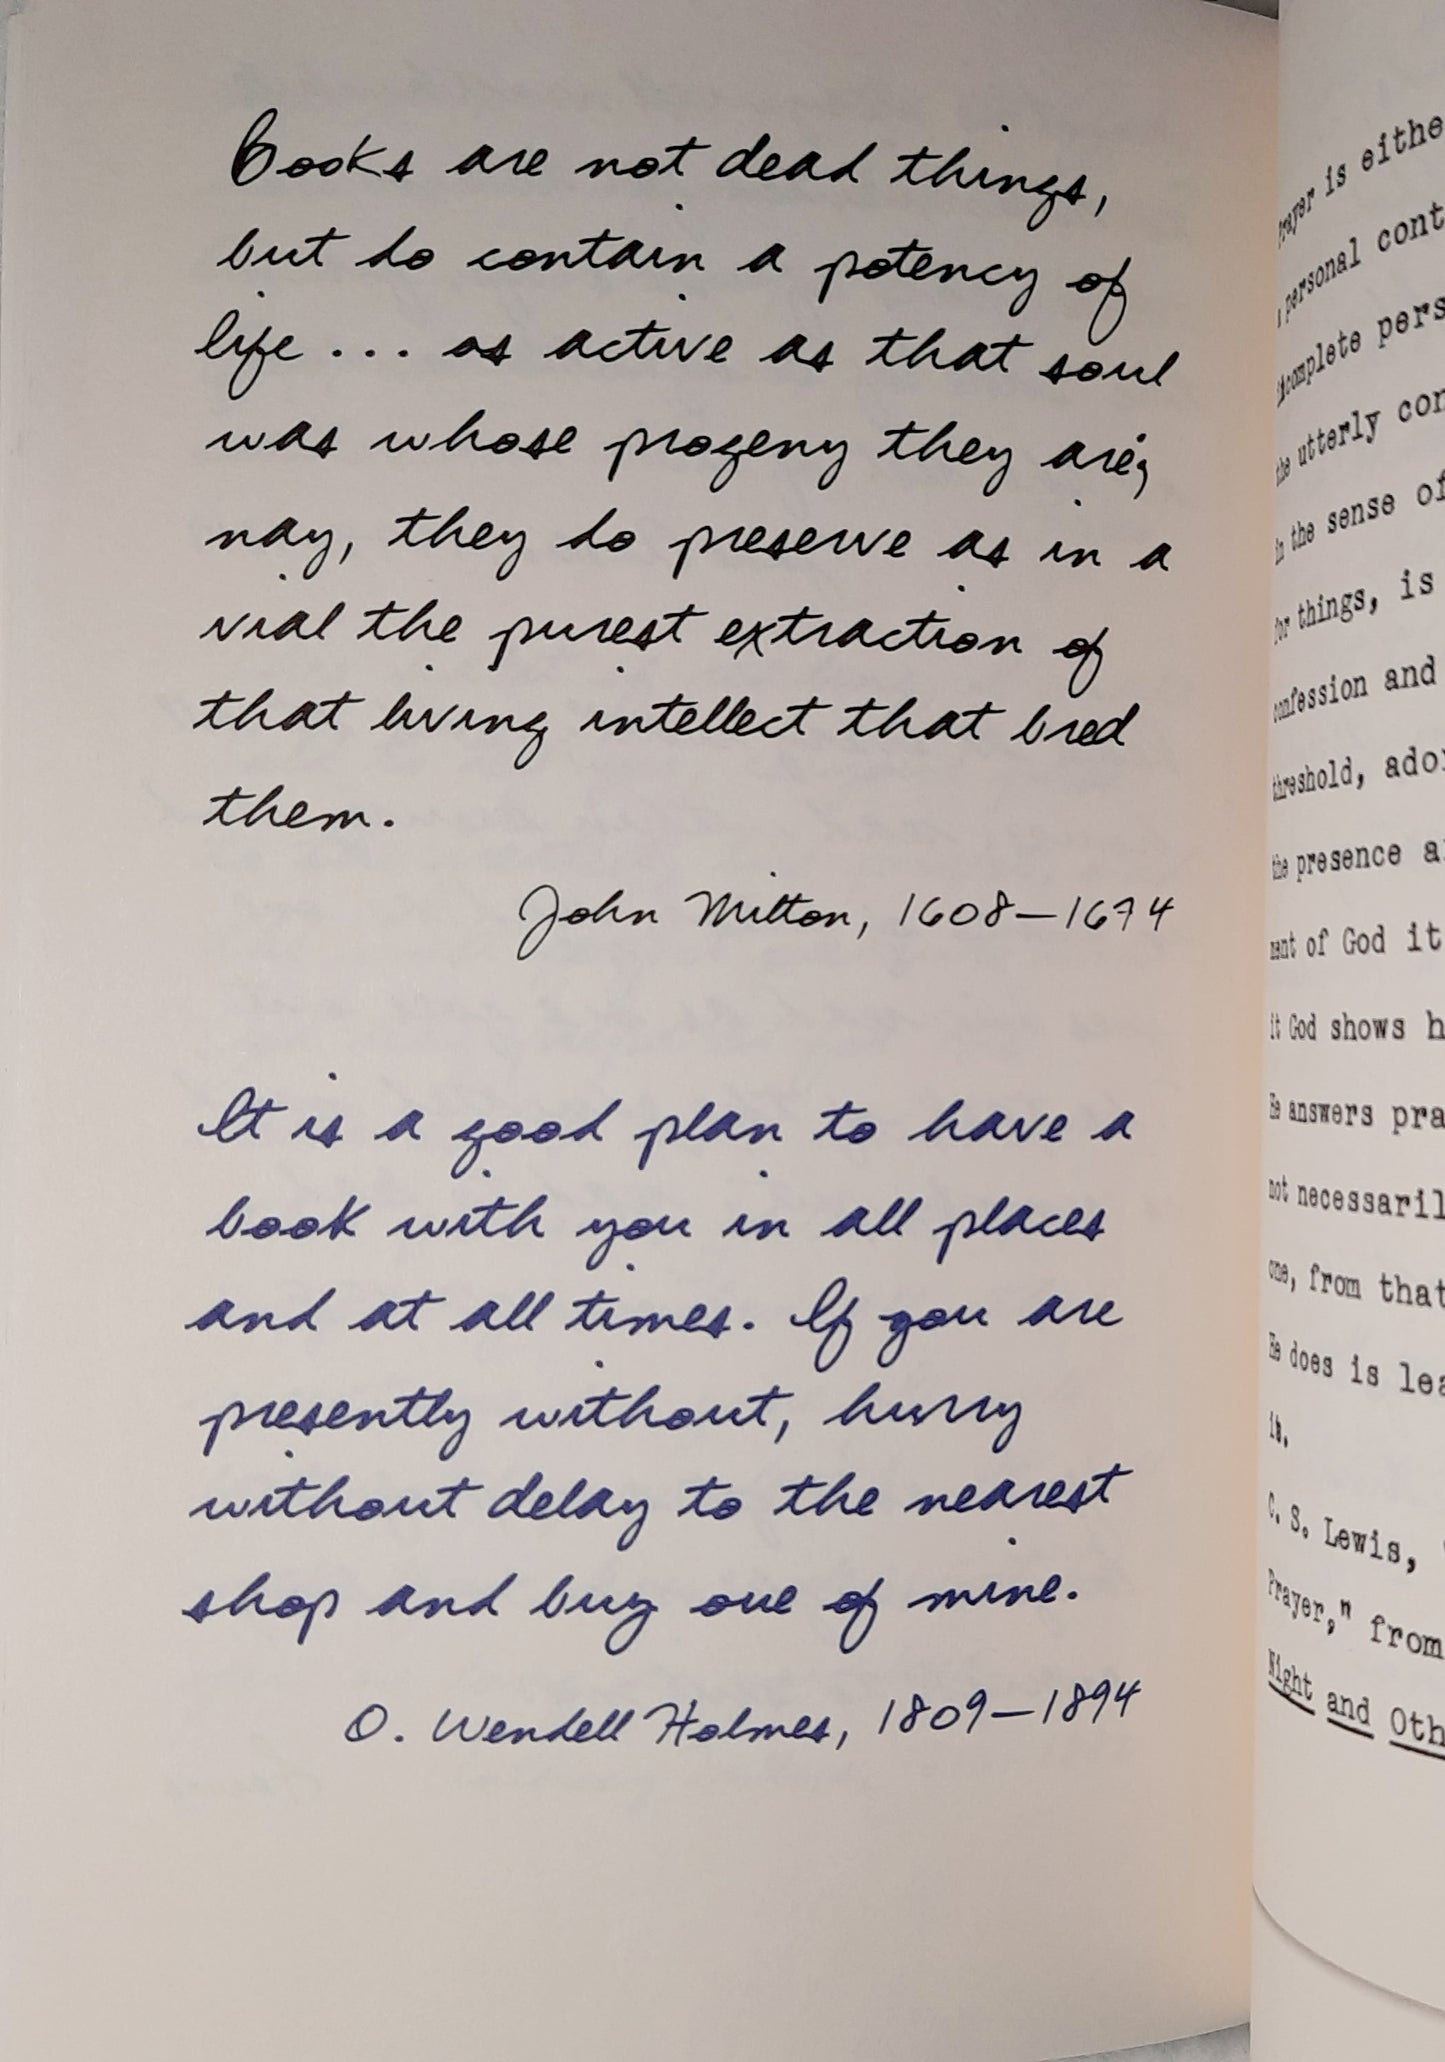 Books are not dead things,
but do contain a potency of
life ... as active as that soul
was whose progeny they are;
nay, they do preserve as in a
vial the purest extraction of
that living intellect that bred
them.
John Milton, 1608—1674
It is a good plan to have a
book with you in all places
and at all times. If you are
presently without, hurry
without delay to the nearest
shop and buy one of mine.
O. Wendell Holmes, 1809—1894
Prayer is
personal
the utterly
in the sense of
for things, is
confession and
threshold,
the presence
of God it
it God shows
He answers
not
one, from that
He does is
is.
C. S. Lewis,
Prayer," from
Night and